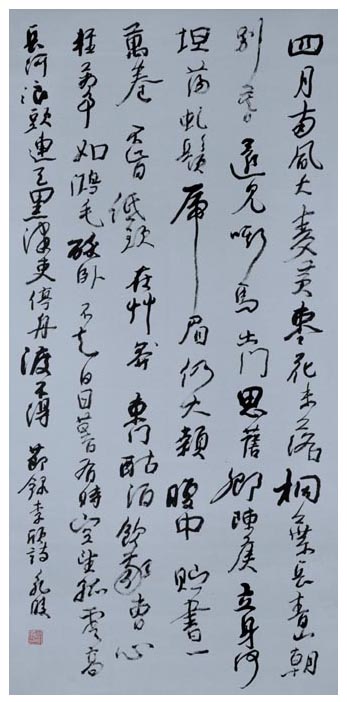 四月南風大麥黃棗花未落桐葉長青山朝
別暮還見嘶馬出門思舊鄉陳侯立身何
坦蕩虬鬚虎眉仍大顙腹中貯書一
萬卷不肯低頭在艸莽東門酤酒飲我曹心
輕萬事如鴻毛醉臥不知白日暮有時空望孤雲高
長河浪頭連天黑津吏停舟渡不得 節錄李頎詩